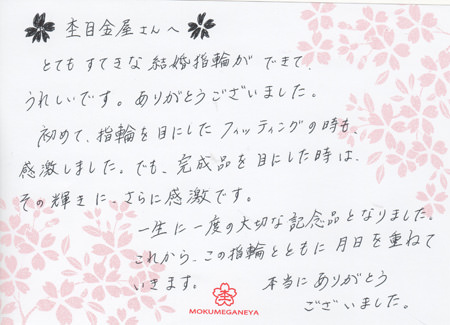 杢目金屋さんへ
とてもすてきな結婚指輪ができて、
うれしいです。ありがとうございました。
初めて、指輪を目にしたフィッティングの時も、
感激しました。でも、完成品を目にした時は、
その輝きに、さらに感激です。
一生に一度の大切な記念品となりました。
これから、この指輪とともに月日を重ねて
いきます。 本当にありがとう
ございました。
MOKUMEGANEYA